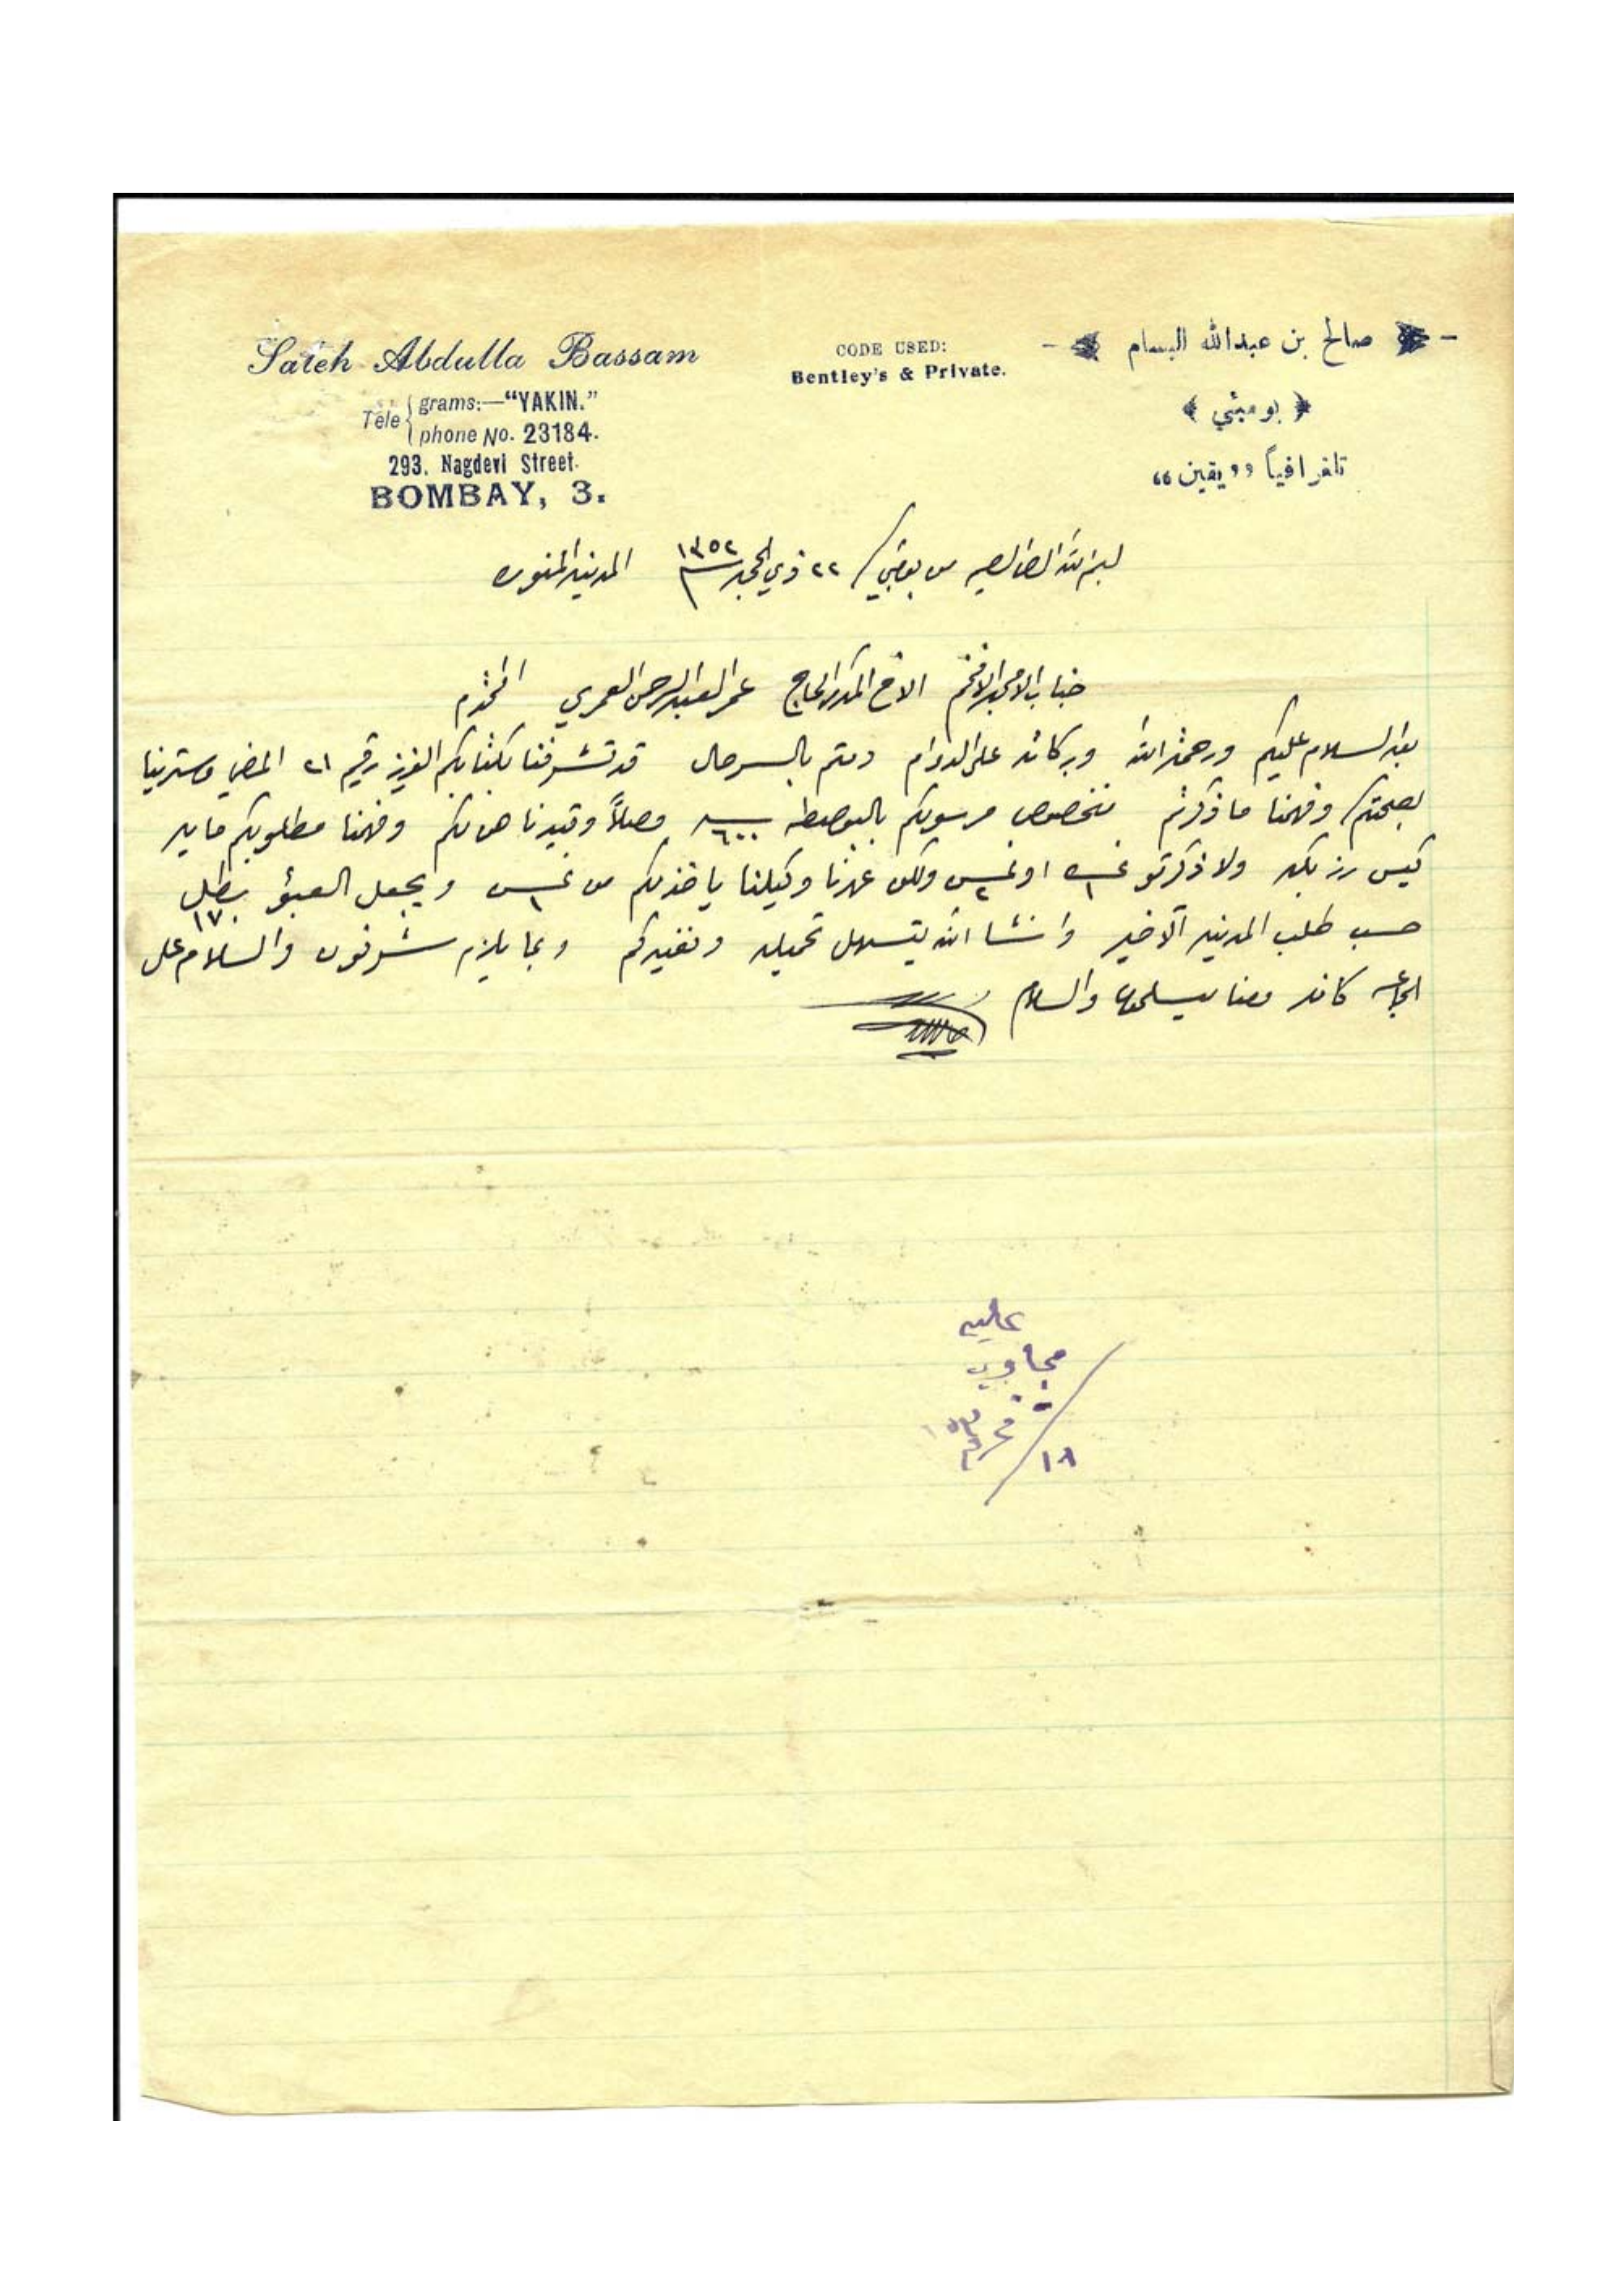 Saleh Abdulla Bassam
Tele { grams:—"YAKIN."
phone No. 23184.
293, Nagdevi Street.
BOMBAY, 3.
CODE USED:
Bentley's & Private.
صالح بن عبدالله البسام
﴿ بومبئي ﴾
تلغرافياً ,,يقين“
من بومبي / ٢٢ ذي الحجه ١٣٥٢ المدينه المنوره
جناب الامجد الافخم الاخ المكرم الحاج عمر العبدالرحمن العمري المحترم
بعد السلام عليكم ورحمة الله وبركاته على الدوام دمتم بالسرحال قد تشرفنا بكتابكم العزيز رقيم ٢١ الماضي وسترينا
بصحتكم وفهمنا ما ذكرتم بخصوص مرسولكم بالبوصطه ٦٠٠ وصلاً وقيدناهن لكم وفهمنا مطلوبكم مايه
كيس رز ولا ذكرتو او ولكن عرفنا وكيلنا ياخذ لكم من ويجعل العبؤ بطل ١٧٠
حسب طلب المدينه الاخير وانشا الله يتسهل تحميله ونفيدكم وبما يلزم شرفون والسلام على
الجماعه كافه ومنا يسلمون والسلام
عليه
مجاوب
١٨ / محرم ٥٣